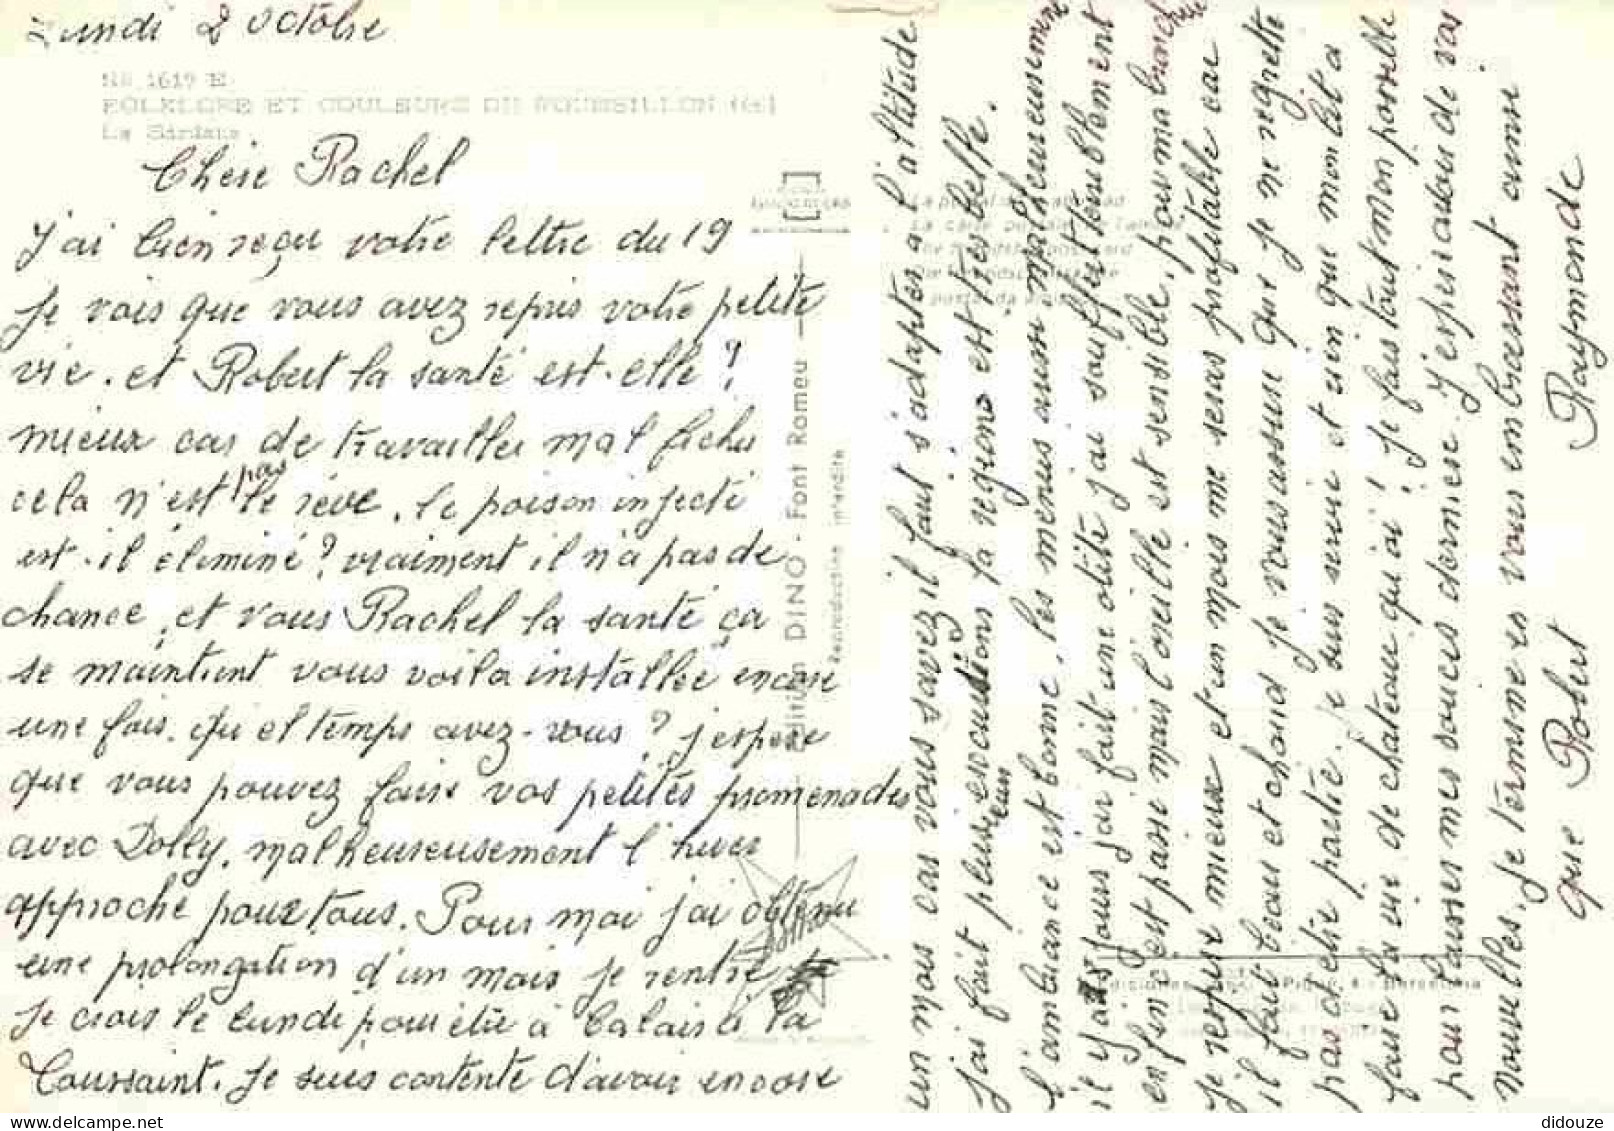 Lundi 2 octobre
No 1619 E
FOLKLORE ET COULEURS DU ROUSSILLON
La Sardane
Chère Rachel
J'ai bien reçu votre lettre du 19
Je vois que vous avez repris votre petite
vie. et Robert la santé est-elle ?
mieux car de travailler mal fichu
cela n'est pas le rêve, le poison injecté
est-il éliminé ? vraiment il n'a pas de
chance, et vous Rachel la santé ça
se maintient vous voila installée encore
une fois. Quel temps avez-vous ? j'espère
que vous pouvez faire vos petites promenades
avec Dolly, malheureusement l'hiver
approche pour tous. Pour moi j'ai obtenu
une prolongation d'un mois je rentre
Je crois le lundi pour être à Calais à la
Toussaint. Je suis contente d'avoir encore
Edition DINO - Font Romeu
Reproduction interdite
un mois car vous savez il faut s'adapter à l'altitude
J'ai fait plusieurs excursions la région est très belle.
l'ambiance est bonne, les menus aussi malheureusement
il y a 15 jours j'ai fait une otite j'ai souffert terriblement
enfin c'est passé mais l'oreille est sensible, pour ma bronchite
Je respire mieux et un mois me sera profitable car
il fait beau et chaud je vous assure que je ne regrette
pas d'être partie. Je suis servie et rien que mon lit a
faire la vie de chateau quoi ! Je fais tout mon possible
pour laisser mes soucis derrière. J'espère avoir de vos
nouvelles. Je termine en vous embrassant ainsi
que Robert Raymonde
didouze